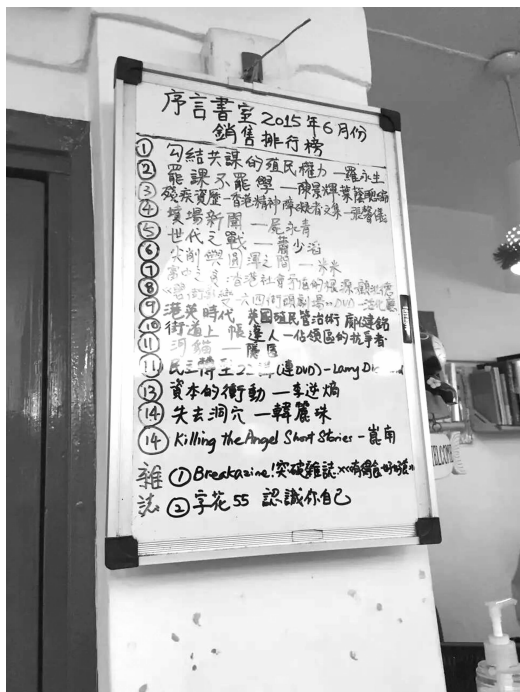 序言書室 2015年6月份
銷售排行榜
① 勾結共謀的殖民權力 — 羅永生
② 罷課不罷學 — 陳景輝 葉蔭聰編
③ 殘疾資歷 — 香港精神障礙者文集 — 張馨儀
④ 墳場新聞 — 屍永青
⑤ 世代之戰 — 蕭少滔
⑥ 尖削與圓渾之間 — 米米
⑦ 富中之貧 香港社會不 的根源 顧汝德
⑧ 六四街頭劇場 DVD
⑨ 港英時代 英國殖民管治術 鄺健銘
⑩ 街道上 帳 達人 — 佔領區的抗爭者
⑪ 洞貓 — 隱匿
⑪ 民主 (連DVD) - Larry
⑬ 資本的衝動 — 李逆熵
⑭ 失去洞穴 — 韓麗珠
⑭ Killing the Angel Short Stories - 崑南
雜誌 ① Breakazine! 突破雜誌
② 字花 55 認識你自己
WELCOME